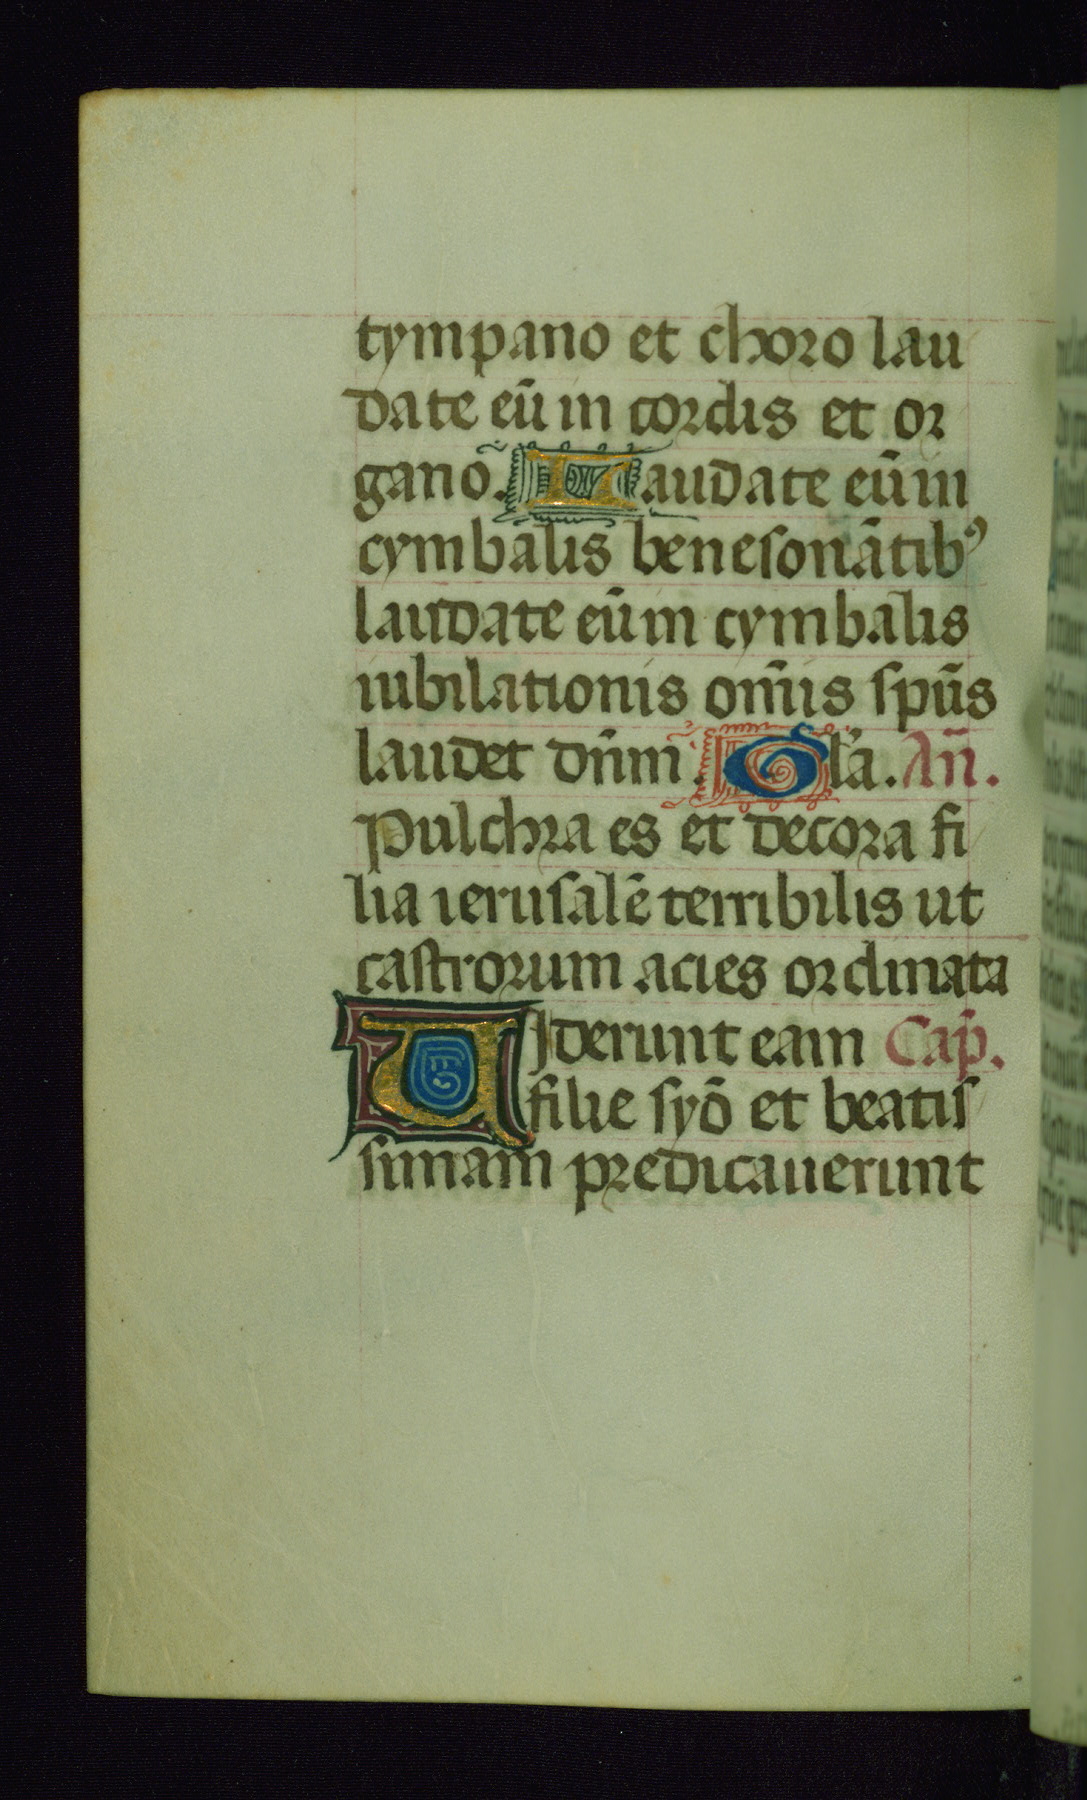 tympano et choro lau
date eū in cordis et or
gano᷃. Laudate eū in
cymbalis benesonātibꝰ
laudate eū in cymbalis
iubilationis om̄is spūs
laudet dn̄m. Gl'a. An̄.
Pulchra es et decora fi
lia ierusalē terribilis ut
castrorum acies ordinata
Uiderunt eam Cap̄.
filie syō et beatis
simam predicauerunt